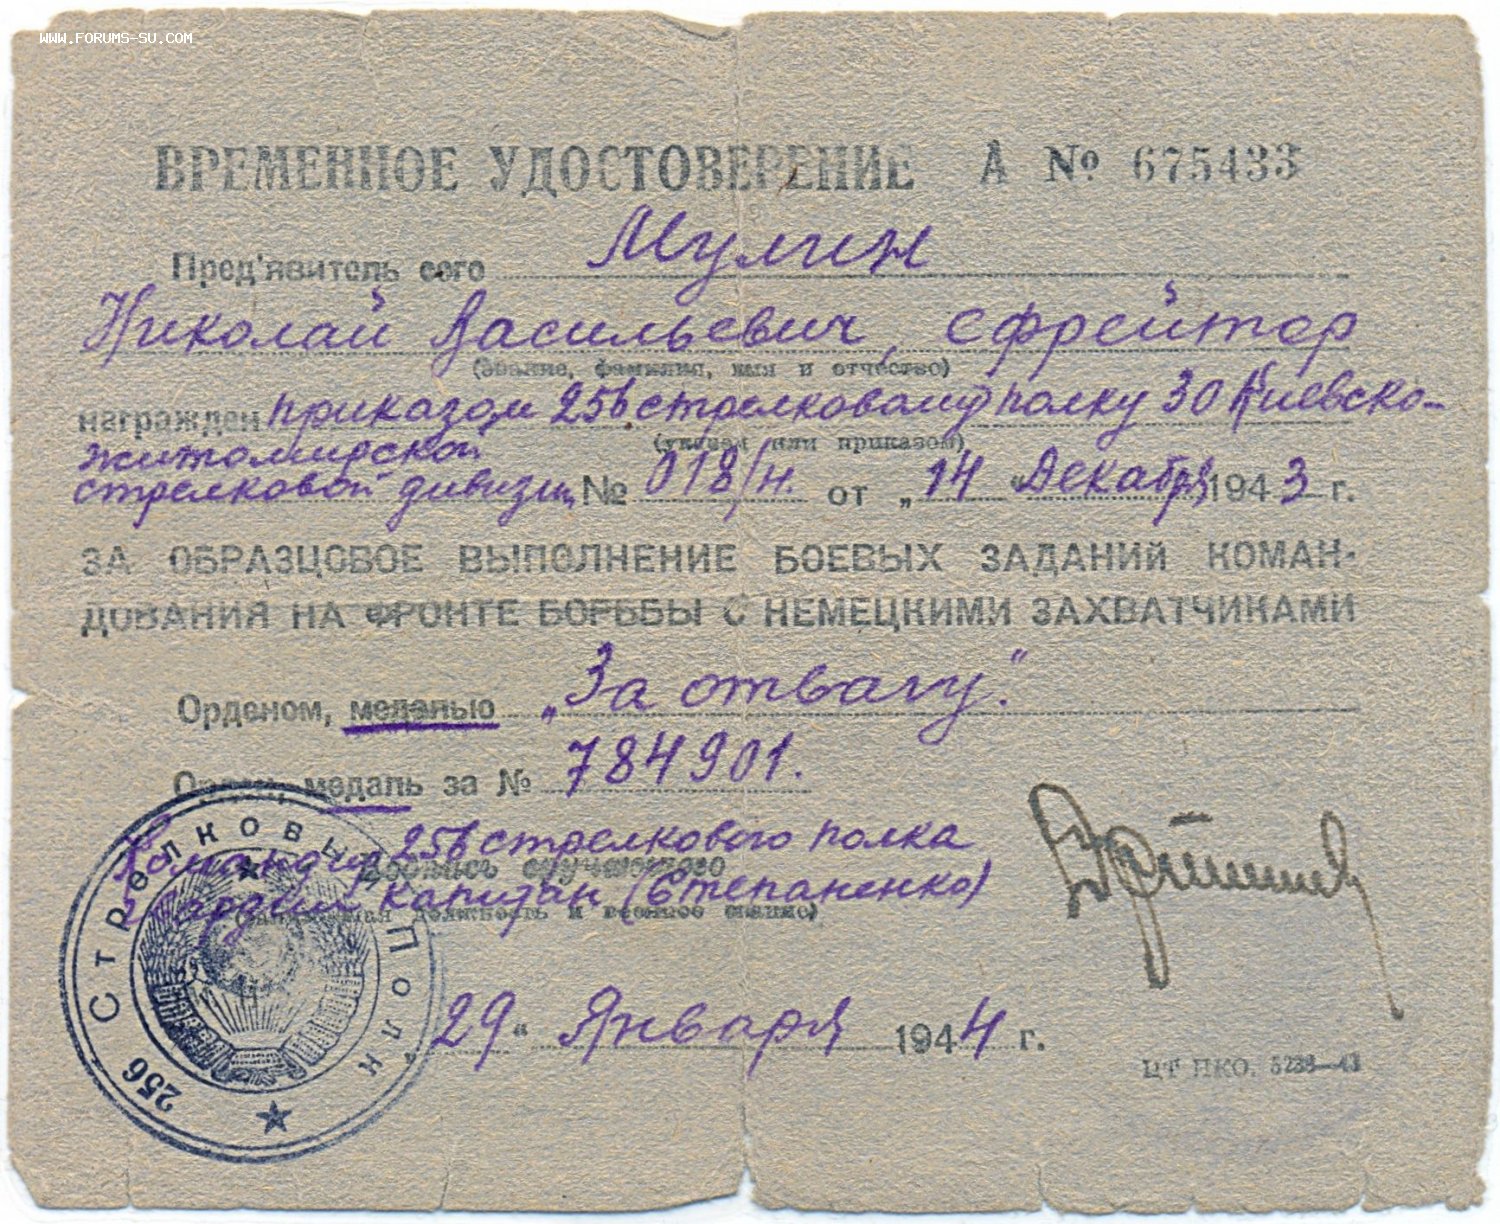 WWW.FORUMS-SU.COM
ВРЕМЕННОЕ УДОСТОВЕРЕНИЕ А № 675433
Пред'явитель сего Мулин
Николай Васильевич, ефрейтор
(звание, фамилия, имя и отчество)
награжден приказом 256 стрелковому полку 30 Киевско-
(указом или приказом)
житомирской
стрелковой дивизии № 018/н. от „14 “ Декабря 1943 г.
ЗА ОБРАЗЦОВОЕ ВЫПОЛНЕНИЕ БОЕВЫХ ЗАДАНИЙ КОМАН-
ДОВАНИЯ НА ФРОНТЕ БОРЬБЫ С НЕМЕЦКИМИ ЗАХВАТЧИКАМИ
Орденом, медалью „За отвагу“.
Орден, медаль за № 784901.
Командир 256 стрелкового полка
Подпись вручающего
гвардии капитан (Степаненко)
(занимаемая должность и военное звание)
29 “ Января 1944 г.
ЦТ НКО. 5238—43
256 Стрелковый Полк